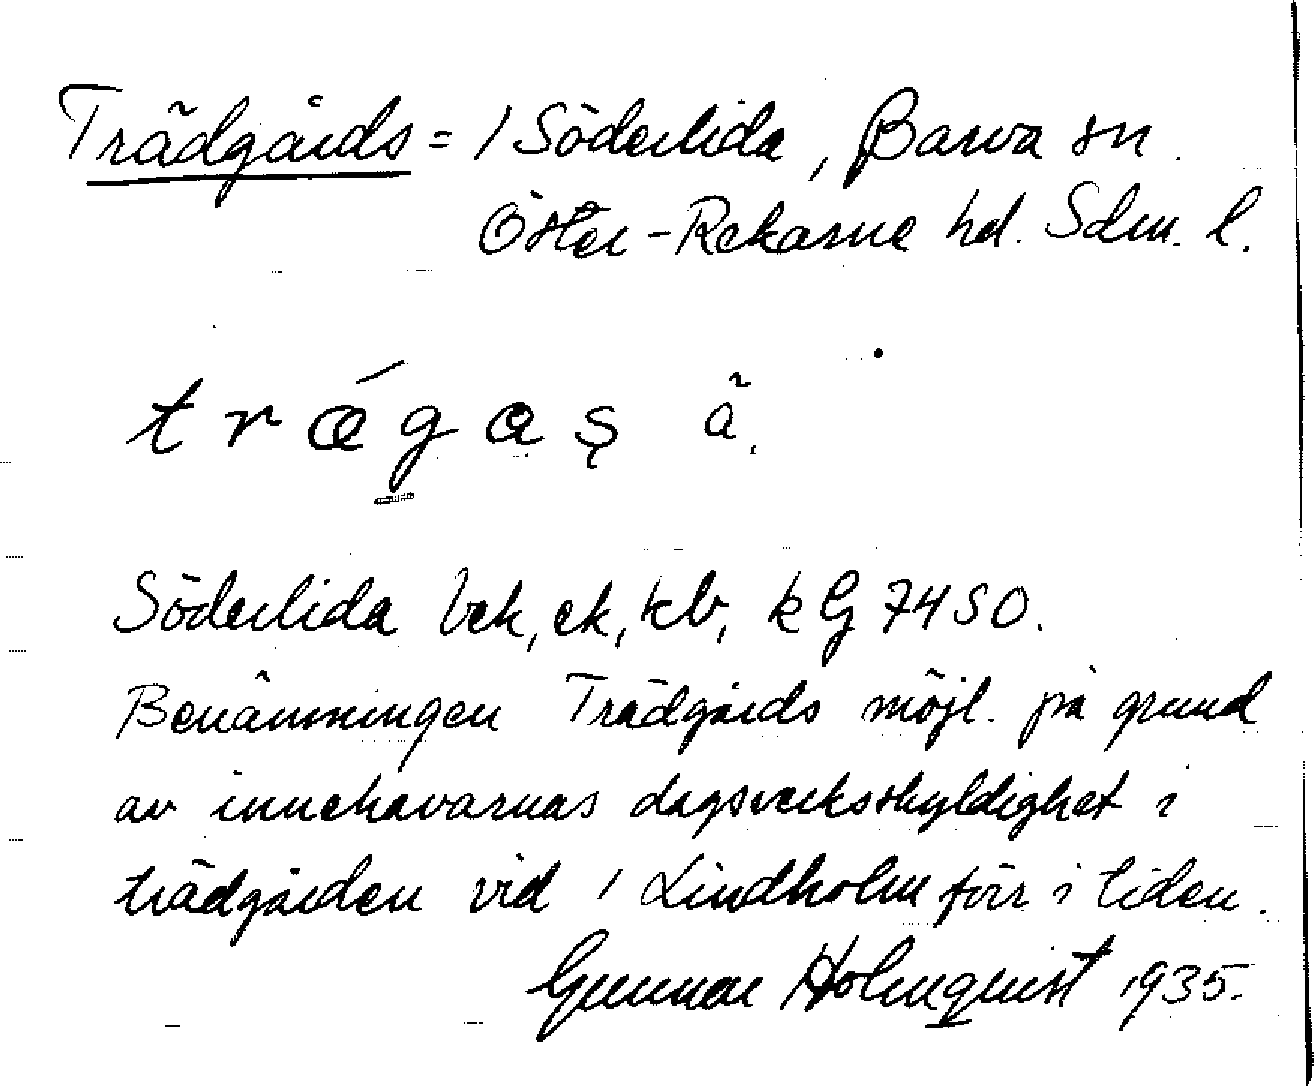 Trädgårds = / Söderlida, Barva sn.
Öster-Rekarne hd. Sdm. l.
trǽgas ã.
Söderlida bek, ek, kb, k G 7450.
Benämningen Trädgårds möjl. på grund
av innehavarnas dagsverksskyldighet i
trädgården vid / Lindholm förr i tiden.
Gunnar Holmquist 1935.